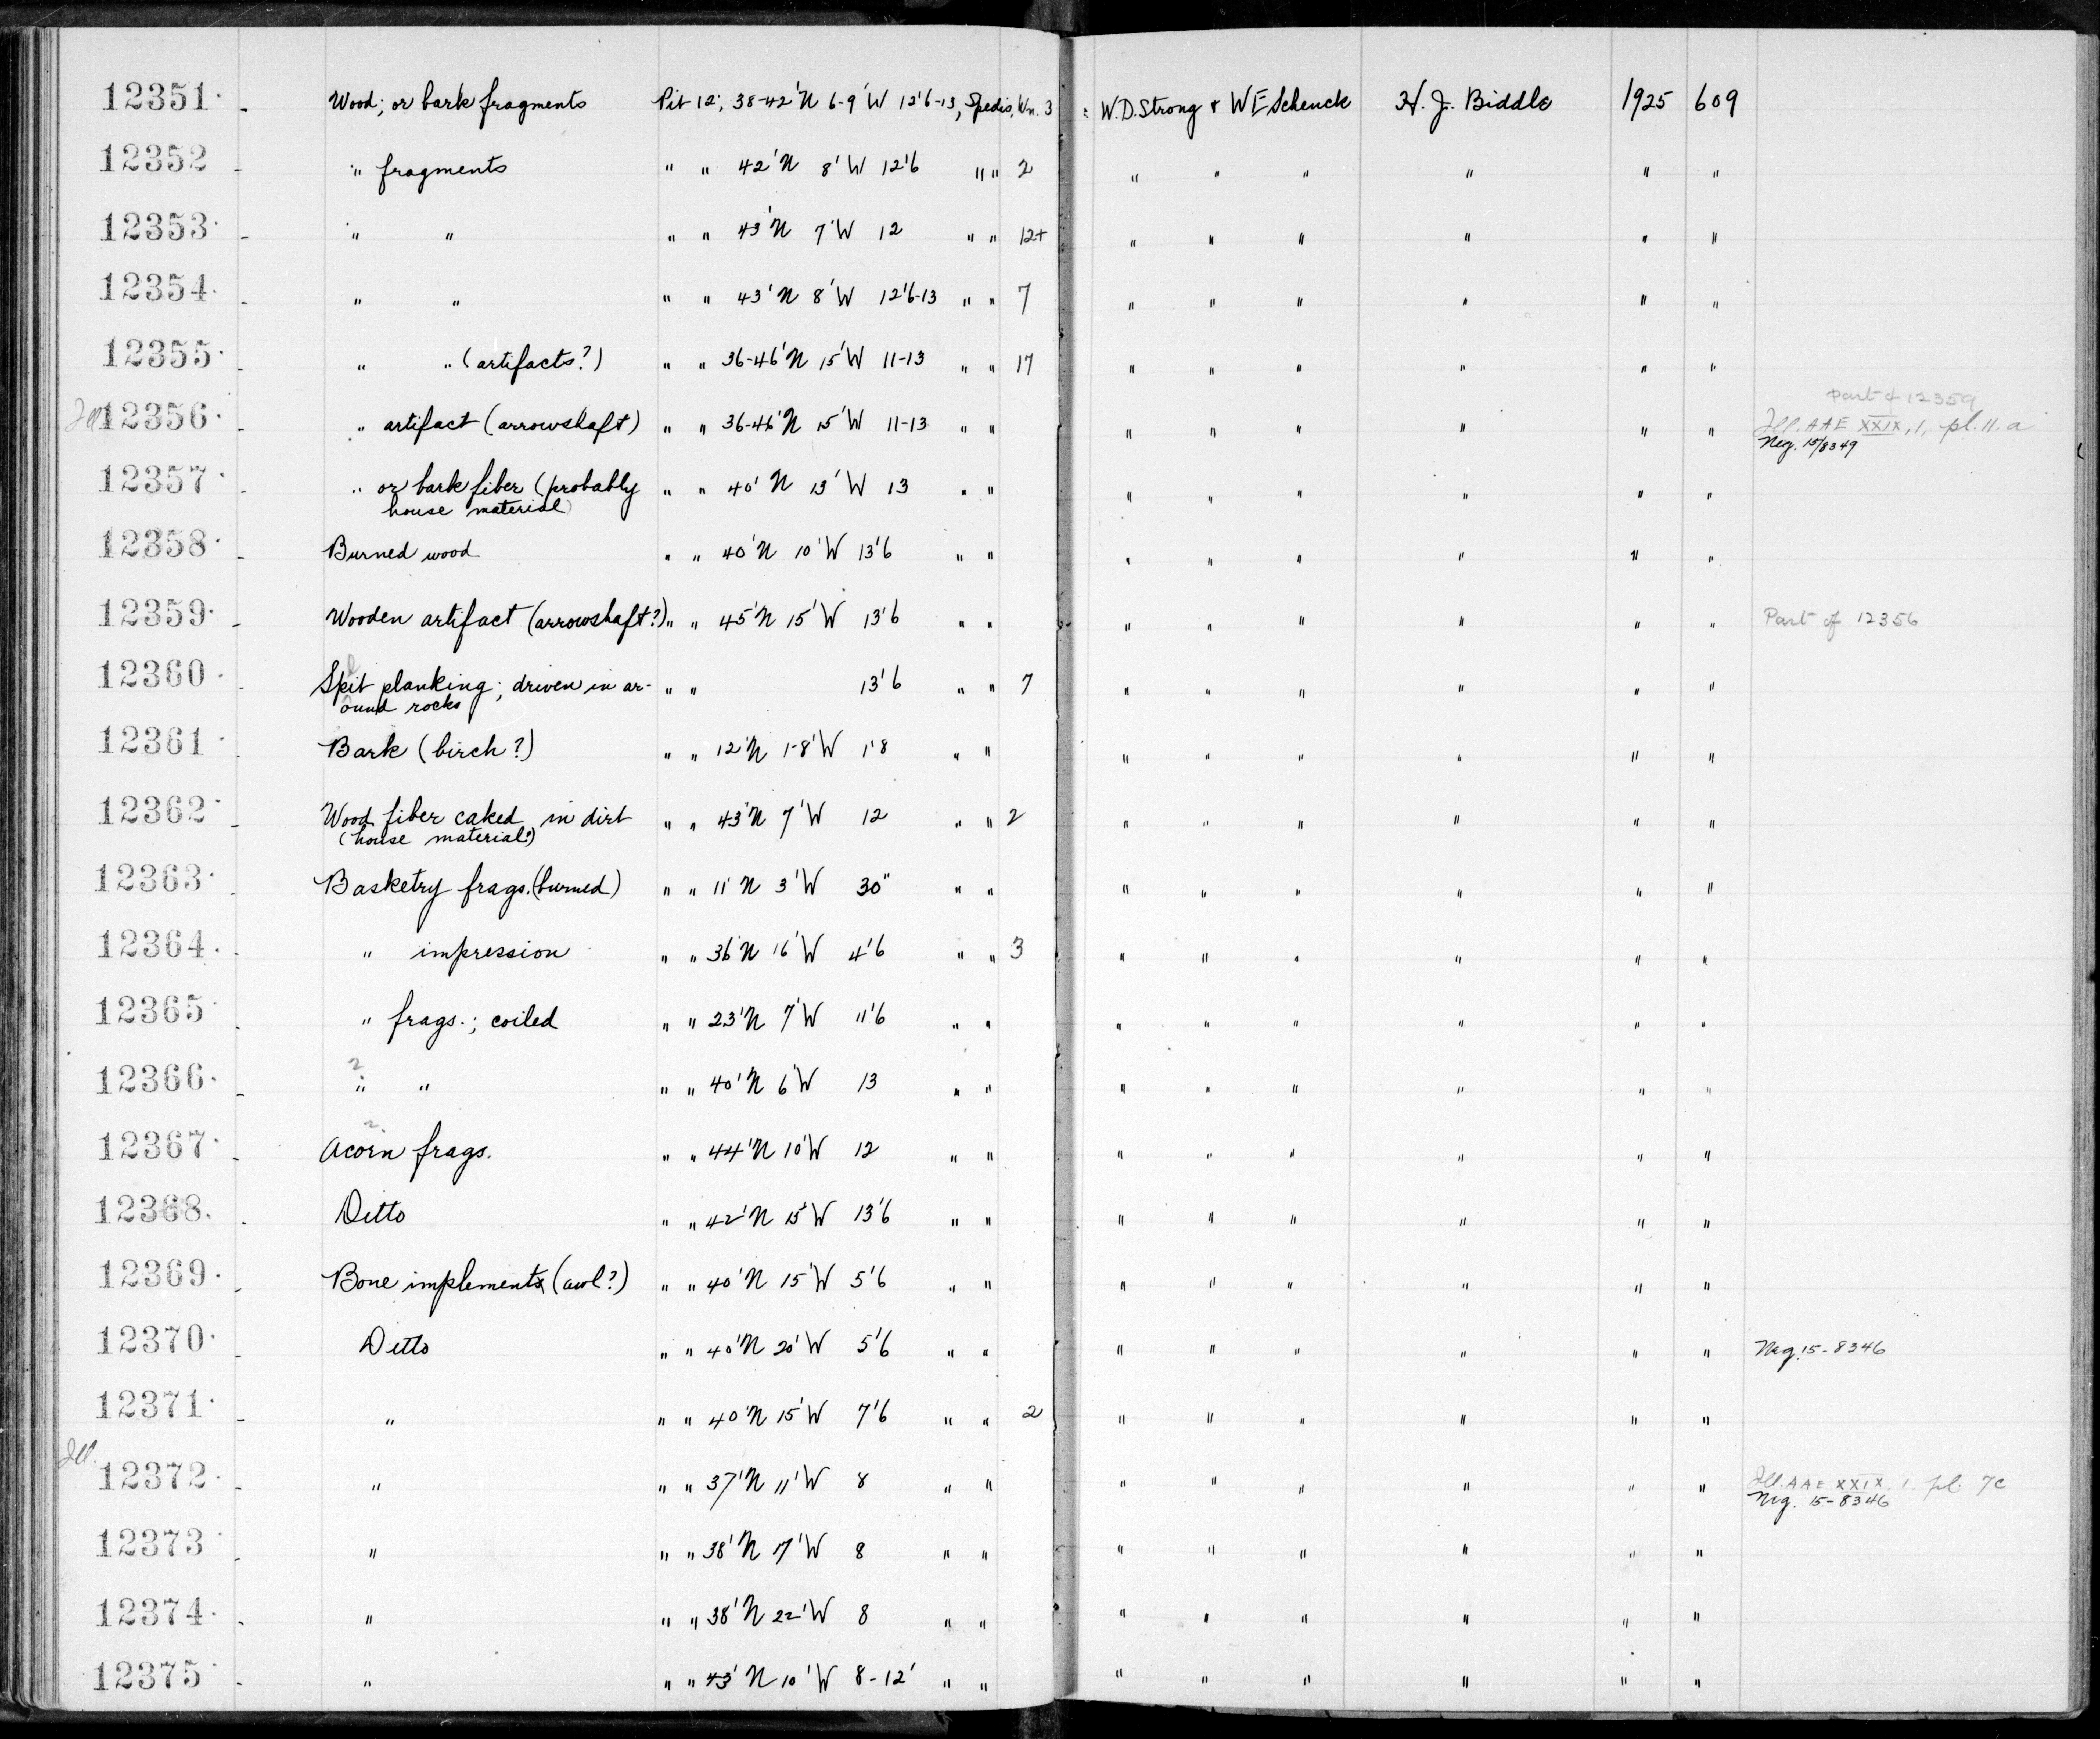 12351. - Wood; or bark fragments Pit 12; 38-42'N 6-9'W 12'6-13, Spedis, Wn. 3 W.D. Strong & WE Schenck H. J. Biddle 1925 609
12352 - " fragments " " 42'N 8'W 12'6 " " 2 " " " " " "
12353. - " " " " 43'N 7'W 12 " " 12+ " " " " " "
12354. - " " " " 43'N 8'W 12'6-13 " " 7 " " " " " "
12355. - " " (artifacts?) " " 36-46'N 15'W 11-13 " " 17 " " " " " "
Part of 12359
Ill 12356. " artifact (arrowshaft) " " 36-46'N 15'W 11-13 " " " " " " " " Ill. AAE XXIX, 1, pl. 11. a
Neg. 15/8349
12357. - " or bark fiber (probably " " 40'N 13'W 13 " " " " " " " "
house material)
12358. - Burned wood " " 40'N 10'W 13'6 " " " " " " " "
12359. - Wooden artifact (arrowshaft?) " " 45'N 15'W 13'6 " " " " " " " " Part of 12356
l
12360. - Spit planking; driven in ar- " " 13'6 " " 7 " " " " " "
ound rocks
12361. - Bark (birch?) " " 12'N 1-8'W 1'8 " " " " " " " "
12362. - Wood fiber caked in dirt " " 43'N 7'W 12 " " 2 " " " " " "
(house material?)
12363. - Basketry frags. (burned) " " 11'N 3'W 30" " " " " " " " "
12364. - " impression " " 36'N 16'W 4'6 " " 3 " " " " " "
12365. - " frags.; coiled " " 23'N 7'W 11'6 " " " " " " " "
2
12366. - " " " " 40'N 6'W 13 " " " " " " " "
2
12367. - Acorn frags. " " 44'N 10'W 12 " " " " " " " "
12368. - Ditto " " 42'N 15'W 13'6 " " " " " " " "
12369. - Bone implements (awl?) " " 40'N 15'W 5'6 " " " " " " " "
12370. - Ditto " " 40'N 20'W 5'6 " " " " " " " " Neg. 15-8346
12371. - " " " 40'N 15'W 7'6 " " 2 " " " " " "
Ill.
12372. - " " " 37'N 11'W 8 " " " " " " " " Ill. AAE XXIX, 1, pl. 7c
Neg. 15-8346
12373. - " " " 38'N 17'W 8 " " " " " " " "
12374. - " " " 38'N 22'W 8 " " " " " " " "
12375. - " " " 43'N 10'W 8-12' " " " " " " " "